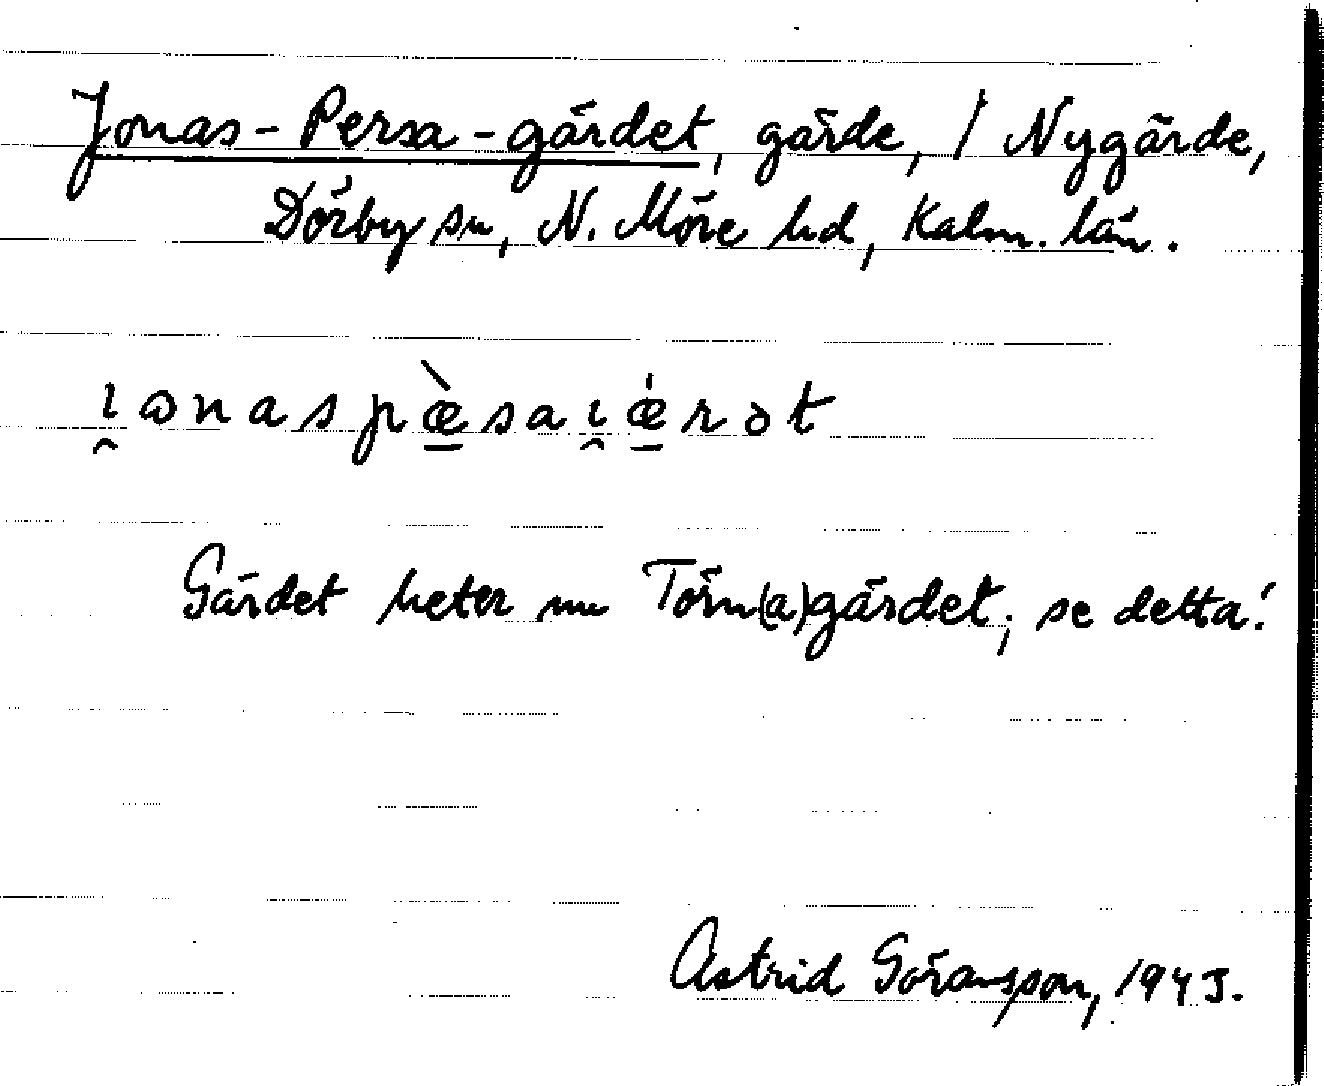 Jonas-Persa-gärdet, gärde, / Nygärde,
Dörby sn, N. Möre hd, Kalm. län.
ı̯ɷnaspæ̀saı̯ǽrət
Gärdet heter nu Törn(a)gärdet; se detta!
Astrid Göransson, 1943.